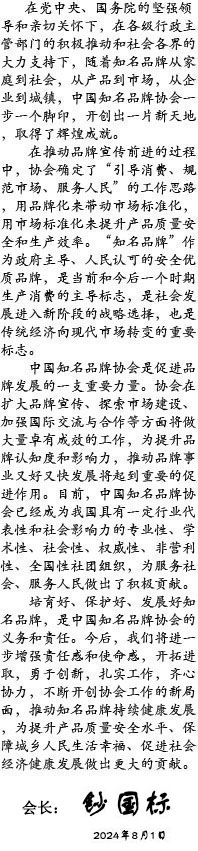 在党中央、国务院的坚强领
导和亲切关怀下，在各级行政主
管部门的积极推动和社会各界的
大力支持下，随着知名品牌从家
庭到社会，从产品到市场，从企
业到城镇，中国知名品牌协会一
步一个脚印，开创出一片新天地
，取得了辉煌成就。
在推动品牌宣传前进的过程
中，协会确定了“引导消费、规
范市场、服务人民”的工作思路
，用品牌化来带动市场标准化，
用市场标准化来提升产品质量安
全和生产效率。“知名品牌”作
为政府主导、人民认可的安全优
质品牌，是当前和今后一个时期
生产消费的主导标志，是社会发
展进入新阶段的战略选择，也是
传统经济向现代市场转变的重要
标志。
中国知名品牌协会是促进品
牌发展的一支重要力量。协会在
扩大品牌宣传、探索市场建设、
加强国际交流与合作等方面将做
大量卓有成效的工作，为提升品
牌认知度和影响力，推动品牌事
业又好又快发展将起到重要的促
进作用。目前，中国知名品牌协
会已经成为我国具有一定行业代
表性和社会影响力的专业性、学
术性、社会性、权威性、非营利
性、全国性社团组织，为服务社
会、服务人民做出了积极贡献。
培育好、保护好、发展好知
名品牌，是中国知名品牌协会的
义务和责任。今后，我们将进一
步增强责任感和使命感，开拓进
取，勇于创新，扎实工作，齐心
协力，不断开创协会工作的新局
面，推动知名品牌持续健康发展
，为提升产品质量安全水平、保
障城乡人民生活幸福、促进社会
经济健康发展做出更大的贡献。
会长：钞国标
2024年8月1日